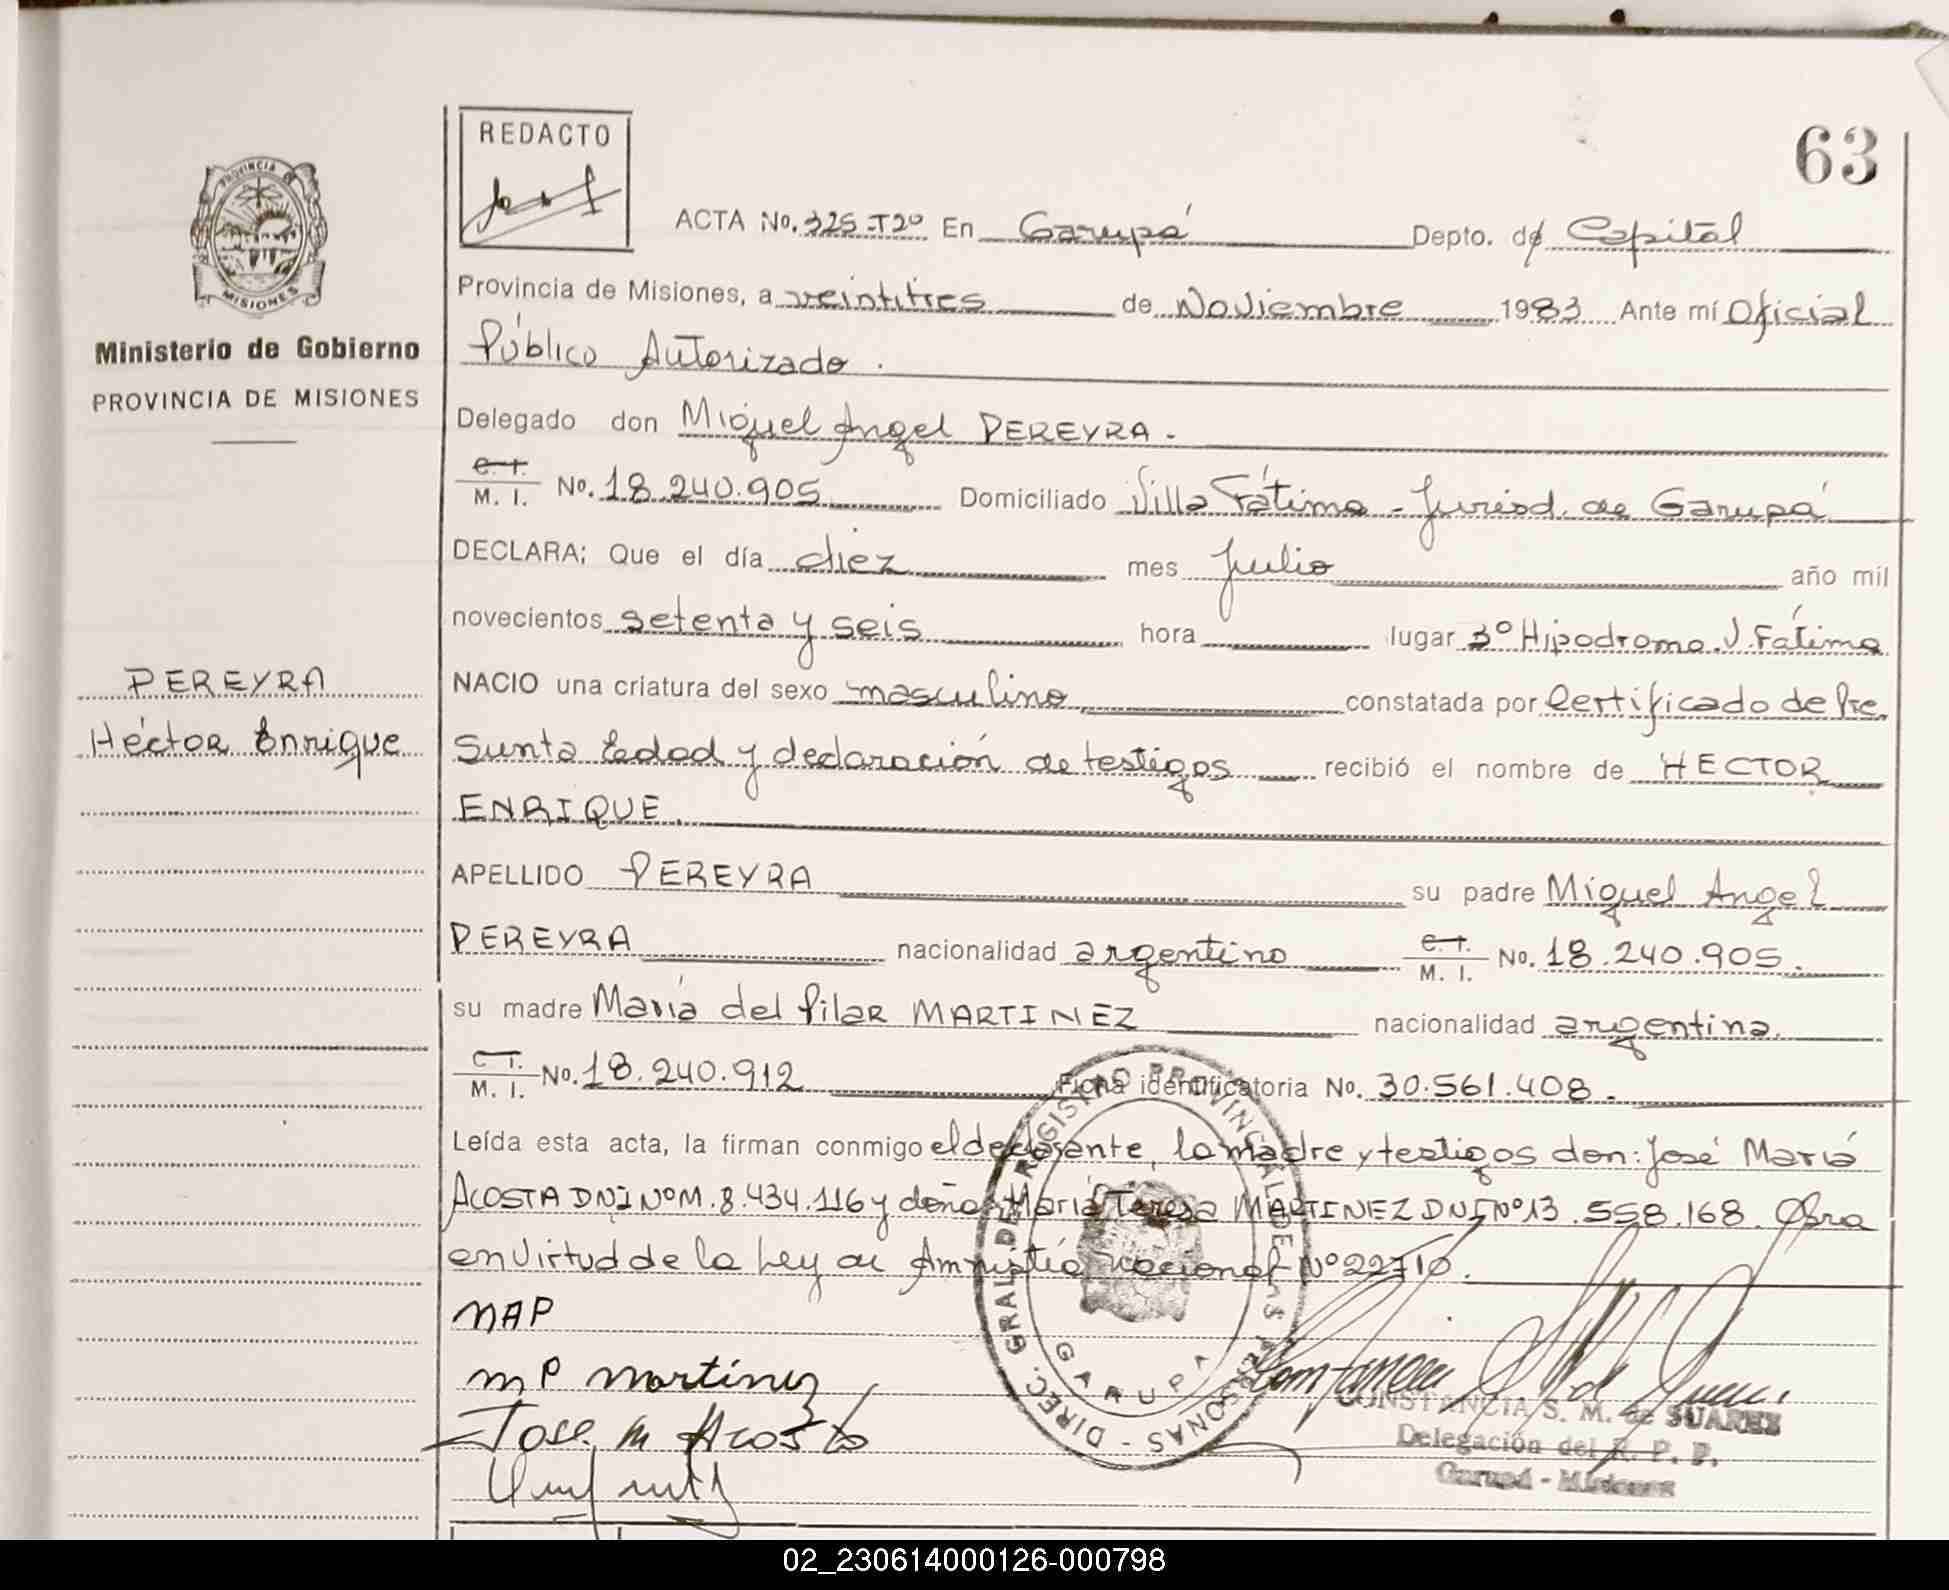 REDACTO
63
PROVINCIA DE MISIONES
Ministerio de Gobierno
PROVINCIA DE MISIONES
PEREYRA
Héctor Enrique
ACTA No. 325-T2º En Garupá Depto. de Capital
Provincia de Misiones, a veintitres de Noviembre 1983 Ante mí Oficial
Público Autorizado.
Delegado don Miguel Angel PEREYRA.-
C. I.
M. I. No. 18.240.905 Domiciliado Villa Fátima - Jurisd. de Garupá
DECLARA; Que el día diez mes Julio año mil
novecientos setenta y seis hora lugar 3º Hipodromo. V. Fátima
NACIO una criatura del sexo masculino constatada por Certificado de Pre
sunta Edad y declaración de testigos recibió el nombre de HECTOR
ENRIQUE.
APELLIDO PEREYRA su padre Miguel Angel
PEREYRA nacionalidad argentino C. I.
M. I. No. 18.240.905.
su madre María del Pilar MARTINEZ nacionalidad argentina.
C. I.
M. I. No. 18.240.912 Ficha identificatoria No. 30.561.408.-
Leída esta acta, la firman conmigo el declarante, la madre y testigos don: José María
ACOSTA DNI Nº M. 8.434.116 y doña María Teresa MARTINEZ DNI Nº 13.558.168. Obra
en virtud de la Ley de Amnistía nacional Nº 22710.
MAP
MP Martínez
Jose M Acosta
DIREC. GRAL DE REGISTRO PROVINCIAL DE LAS PERSONAS -
GARUPA
CONSTANCIA S. M. de SUAREZ
Delegación del R. P. P.
Garupá - Misiones
02_230614000126-000798